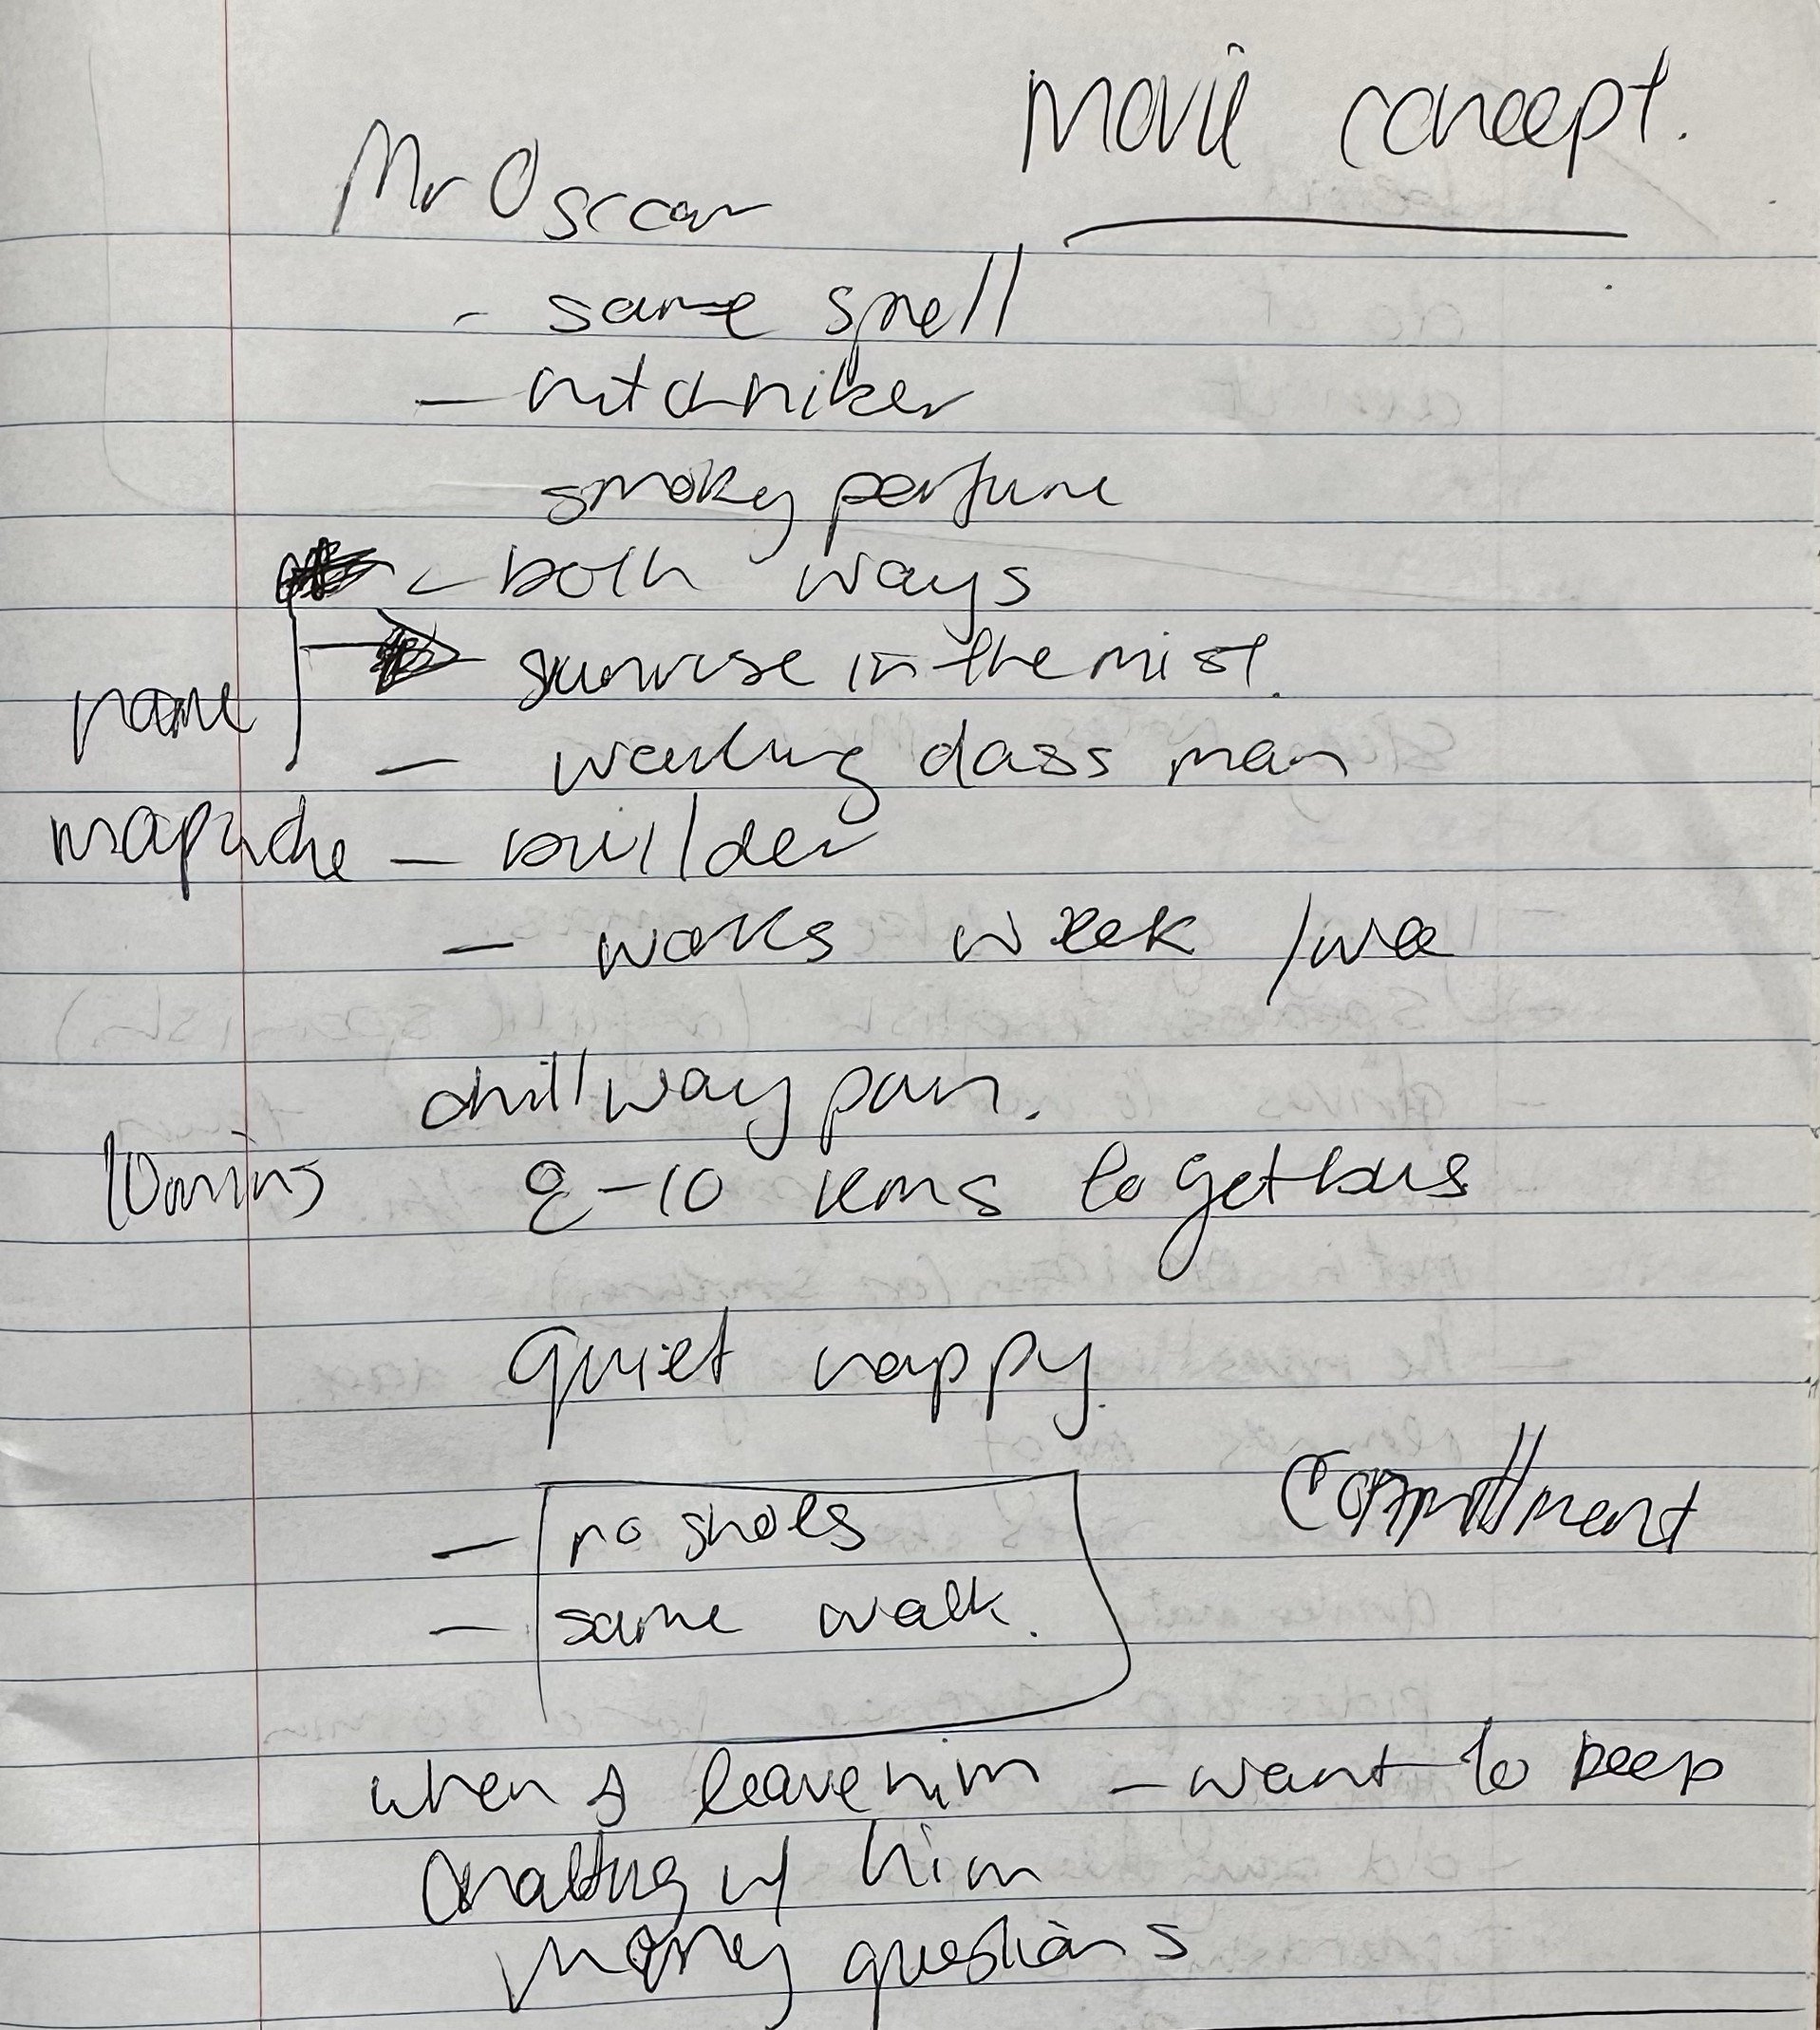 Movie concept.
Mr Oscar
- same smell
- hitchhiker
smoky perfume
- both ways
- sunrise in the mist.
name
- working class man
mapuche - builder
- works week /
chill way
10 mins 8-10 kms to get bus
quiet happy.
- no shoes
Committment
- same walk.
when I leave him - want to keep
chatting w/ him
questions